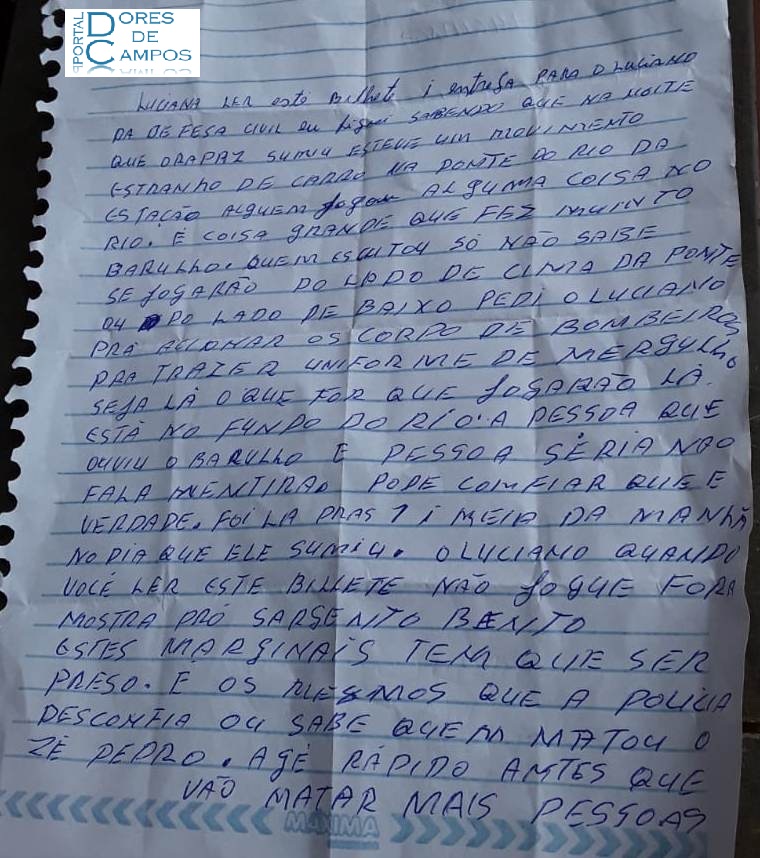 PORTAL
DORES
DE
CAMPOS
LUCIANA LER este Bilhete i entrega PARA O LUCIANO
DA DEFESA CIVIL eu fiquei SABENDO QUE NA NOITE
QUE ORAPAZ SUMIU ESTEVE UM MOVIMENTO
ESTRANHO DE CARRO NA PONTE DO RIO DA
ESTAÇÃO ALGUEM jogou ALGUMA COISA NO
RIO. É COISA GRANDE QUE FEZ MUINTO
BARULHO. QUEM ESCUTOU SÓ NÃO SABE
SE JOGARÃO DO LADO DE CIMA DA PONTE
OU DO LADO DE BAIXO PEDI O LUCIANO
PRA ACIONAR OS CORPO DE BOMBEIROS
PRA TRAZER UNIFORME DE MERGULHO
SEJA LÁ O QUE FOR QUE JOGARÃO LÁ.
ESTÁ NO FUNDO DO RIO. A PESSOA QUE
OUVIU O BARULHO E PESSOA SÉRIA NÃO
FALA MENTIRA PODE COMFIAR QUE E
VERDADE. FOI LA PRAS 1 i MEIA DA MANHÃ
NO DIA QUE ELE SUMIU. O LUCIANO QUANDO
VOCÊ LER ESTE BILLETE NÃO JOGUE FORA
MOSTRA PRÓ SARGENTO BENTO
ESTES MARGINAIS TEM QUE SER
PRESO. É OS MESMOS QUE A POLICIA
DESCONFIA OU SABE QUEM MATOU O
ZÉ PEDRO. AGE RÁPIDO ANTES QUE
VÃO MATAR MAIS PESSOAS
MÁXIMA